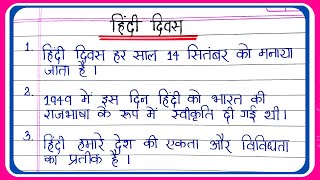 हिंदी दिवस
1. हिंदी दिवस हर साल 14 सितंबर को मनाया
जाता है ।
2. 1949 में इस दिन हिंदी को भारत की
राजभाषा के रूप में स्वीकृति दी गई थी।
3. हिंदी हमारे देश की एकता और विविधता
का प्रतीक है ।